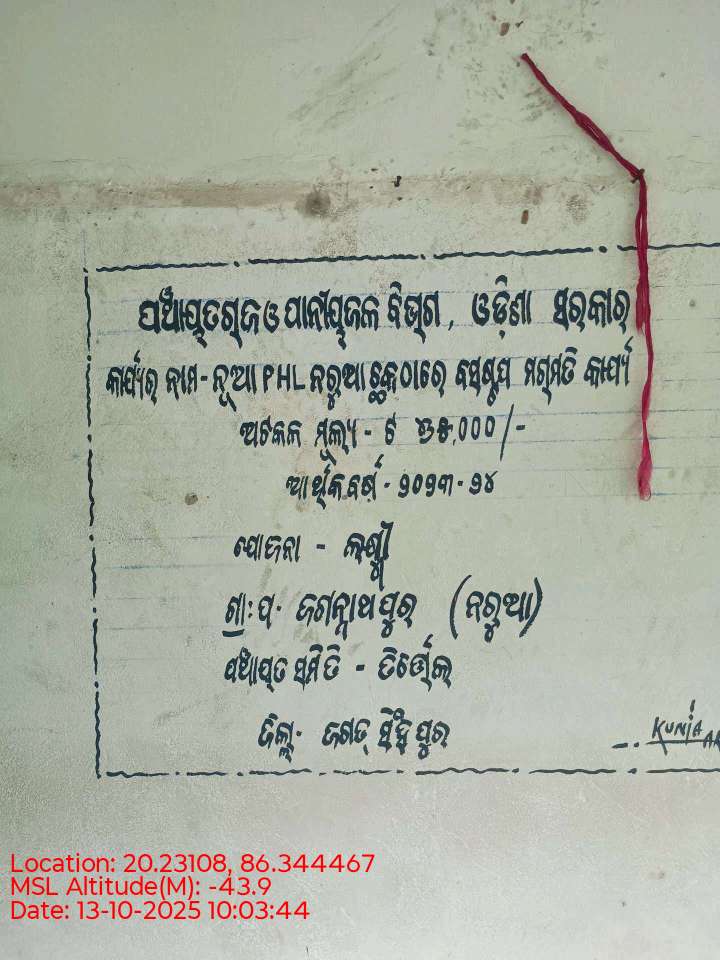 ପଞ୍ଚାୟତରାଜ ଓ ପାନୀୟଜଳ ବିଭାଗ, ଓଡ଼ିଶା ସରକାର
କାର୍ଯ୍ୟର ନାମ - ନୂଆ PHL ନରୁଆ ଛକଠାରେ ବସଷ୍ଟପ ମରାମତି କାର୍ଯ୍ୟ
ଅଟକଳ ମୂଲ୍ୟ - ଟ ,000/-
ଆର୍ଥିକ ବର୍ଷ - ୨୦୨୩-୨୪
ଯୋଜନା -
ଗ୍ରା: ପ - ଜଗନ୍ନାଥପୁର (ନରୁଆ)
ପଞ୍ଚାୟତ ସମିତି - ତିର୍ତ୍ତୋଲ
ଜିଲ୍ଲା - ଜଗତସିଂହପୁର
KUNJA
Location: 20.23108, 86.344467
MSL Altitude(M): -43.9
Date: 13-10-2025 10:03:44